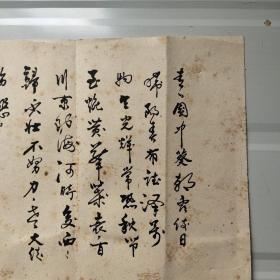 青〻園中葵朝露待日
晞陽春布德澤萬
物生光輝常恐秋節
至焜黄華葉衰百
川東到海何時復西
歸少壮不努力老大徒
傷悲